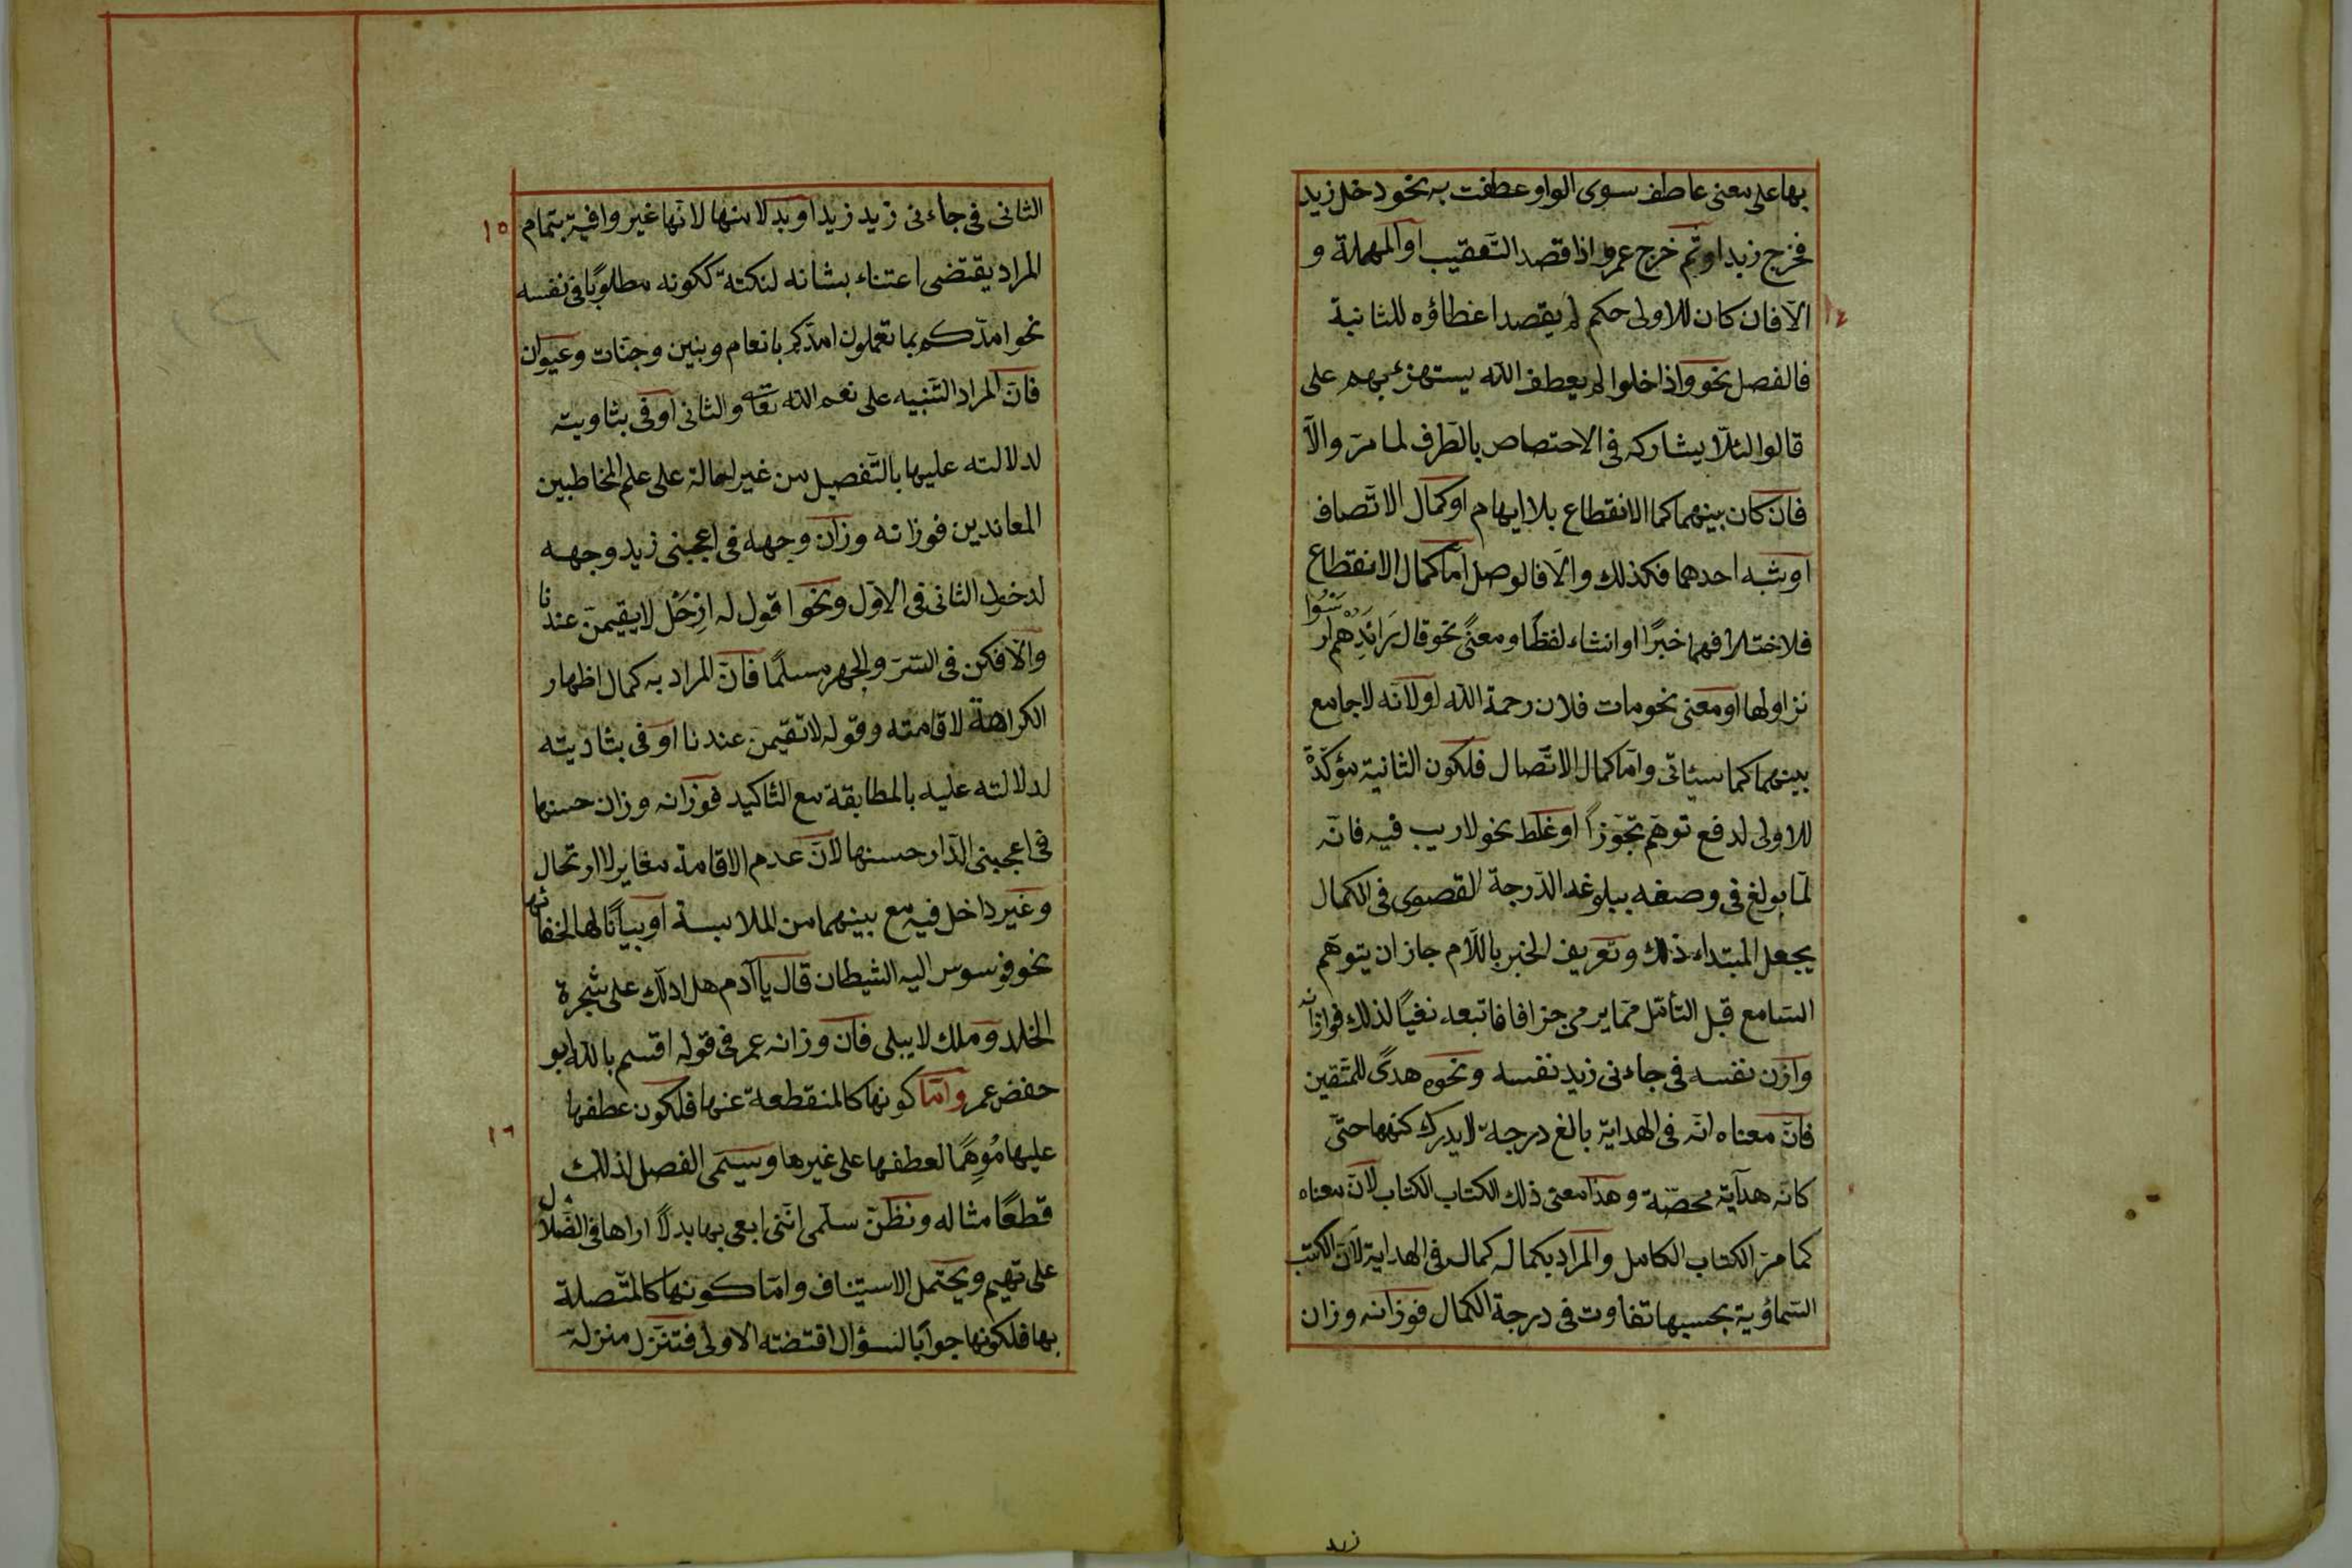 بها على معنى عاطف سوى الواو عطفت به نحو دخل زيد
فخرج زيد او ثم خرج عمرو اذا قصد التعقيب او المهلة و
الّا فان كان للاولى حكم لم يقصد اعطاؤه للثانية
١٤
فالفصل نحو واذا خلوا لم يعطف الله يستهزئ بهم على
قالوا لئلّا يشاركه فى الاختصاص بالظرف لما مرّ والّا
فان كان بينهما كما الانقطاع بلا ايهام او كمال الاتّصاف
او شبه احدهما فكذلك والّا فالوصل امّا كمال الانقطاع
فلاختلافهما خبرًا او انشاء لفظًا ومعنًى نحو قال رَائِدُهم ارسُوا
نزاولها او معنى نحو مات فلان رحمة الله او لانّه لا جامع
بينهما كما سيئاتى وامّا كمال الاتّصال فلكون الثانية مؤكّدةً
للاولى لدفع توهّم تجوّزًا او غلط نحو لا ريب فيه فانّه
لمّا بولغ فى وصفه ببلوغه الدّرجة القصوى فى الكمال
بجعل المبتداء ذلك وتعريف الخبر باللّام جاز ان يتوهّم
السّامع قبل التأمّل ممّا يرمى جزافا فاتبعه نفيًا لذلك فوازانه
وازن نفسه فى جاءنى زيد نفسه ونحوه هدًى للمتّقين
فانّ معناه انّه فى الهداية بالغ درجة لا يدرك كنهها حتّى
كانّه هداية محضّة وهذا معنى ذلك الكتاب الكتاب لانّ معناه
كما مرّ الكتاب الكامل والمراد بكماله كماله فى الهداية لانّ الكتب
السّماوية بحسبها تفاوت فى درجة الكمال فوزانه وزان
زيد
الثانى فى جاءنى زيد زيد او بدلا منها لانّها غير وافية بتمام
١٥
المراد يقتضى اعتناء بشانه لنكتة ككونه مطلوبًا فى نفسه
نحو امدّكم بما تعملون امدّكم بانعام وبنين وجنّات وعيون
فانّ المراد التّنبيه على نعم الله تعا والثانى اوفى بتاويته
لدلالته عليها بالتّفصيل من غير احالة على علم المخاطبين
المعاندين فوزانه وزان وجهه فى اعجبنى زيد وجهه
لدخول الثانى فى الاوّل ونحو اقول له ارْحَل لا يقيمنّ عندنا
والّا فكن فى السّرّ والجهر مسلمًا فانّ المراد به كمال اظهار
الكراهة لاقامته وقوله لا تقيمنّ عندنا اوفى بتاديته
لدلالته عليه بالمطابقة مع التّاكيد فوزانه وزان حسنها
فى اعجبنى الدّار حسنها لانّ عدم الاقامة مغاير لارتحال
وغير داخل فيه مع بينهما من الملابسة او بيانًا لها لخفائها
نحو فوسوس اليه الشيطان قال يا آدم هل ادلّك على شجرة
الخلد وملك لا يبلى فان وزانه عمر فى قوله اقسم بالله ابو
حفض عمر وامّا كونها كالمنقطعة عنها فلكون عطفها
١٦
عليها مُوهِمًا لعطفها على غيرها وسيمّى الفصل لذلك
قطعًا مثاله ونظنّ سلمى انّنى ابعى بها بدلًا اراها فى الضّلال
على تهيم ويحتمل الاستيناف وامّا كونها كالمتّصلة
بها فلكونها جوابًا لسؤال اقتضته الاولى فتنزّل منزلة